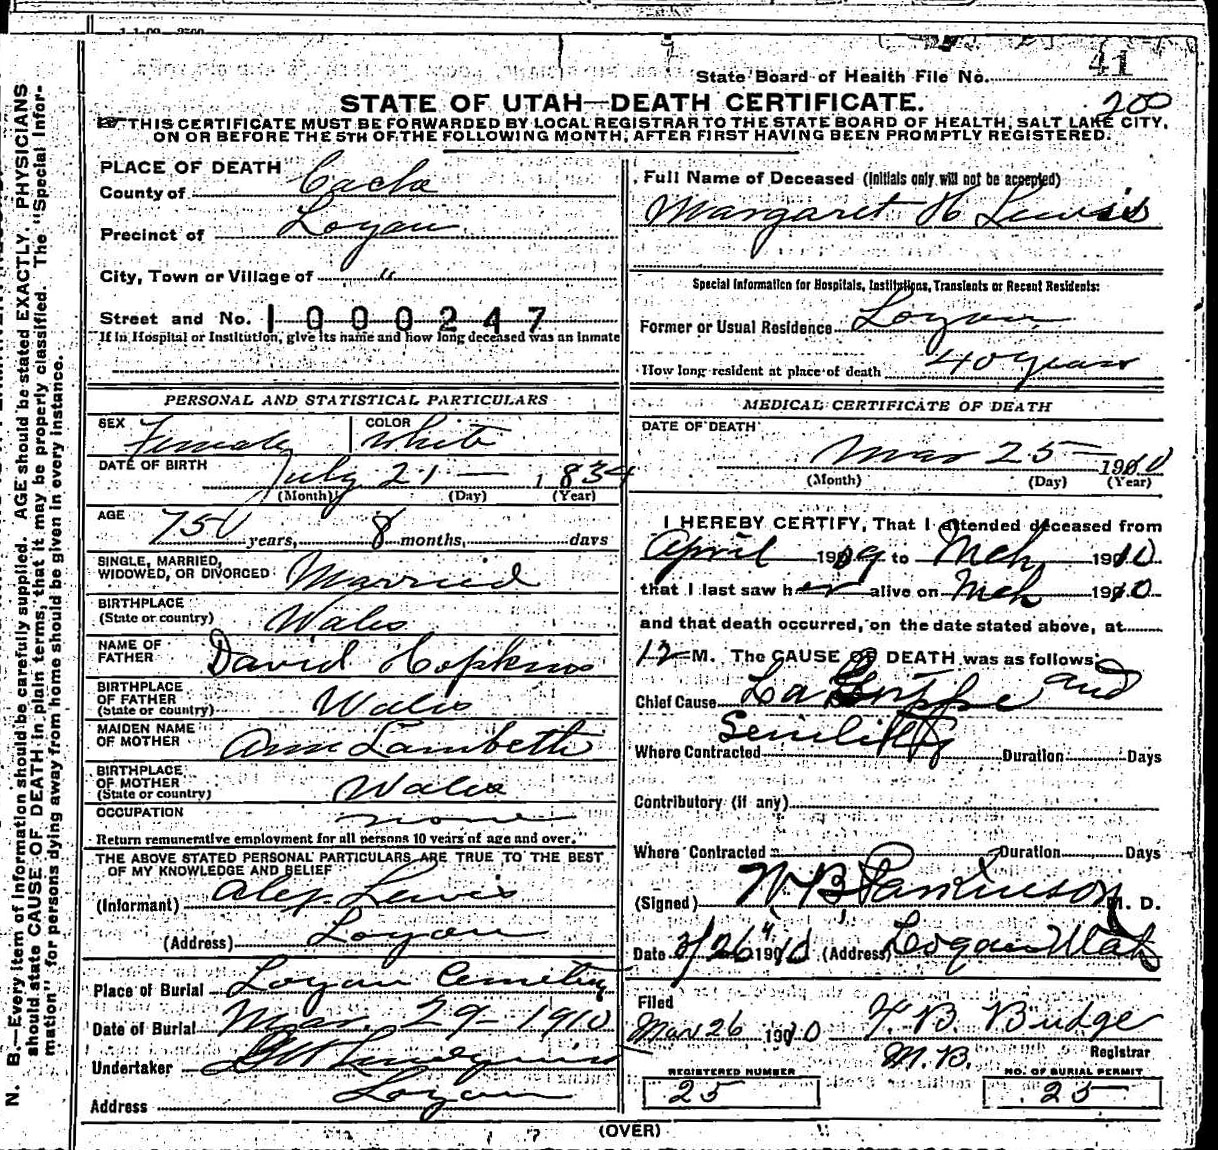 State Board of Health File No. 41
STATE OF UTAH—DEATH CERTIFICATE.
200
THIS CERTIFICATE MUST BE FORWARDED BY LOCAL REGISTRAR TO THE STATE BOARD OF HEALTH, SALT LAKE CITY,
ON OR BEFORE THE 5TH OF THE FOLLOWING MONTH, AFTER FIRST HAVING BEEN PROMPTLY REGISTERED.
PLACE OF DEATH
County of Cache
Precinct of Logan
City, Town or Village of "
Street and No. 1000247
If in Hospital or Institution, give its name and how long deceased was an inmate
PERSONAL AND STATISTICAL PARTICULARS
SEX Female COLOR White
DATE OF BIRTH July 21 — 1834
(Month) (Day) (Year)
AGE 75 years, 8 months, days
SINGLE, MARRIED,
WIDOWED, OR DIVORCED Married
BIRTHPLACE
(State or country) Wales
NAME OF
FATHER David Hopkins
BIRTHPLACE
OF FATHER
(State or country) Wales
MAIDEN NAME
OF MOTHER Ann Lambeth
BIRTHPLACE
OF MOTHER
(State or country) Wales
OCCUPATION none
Return remunerative employment for all persons 10 years of age and over.
THE ABOVE STATED PERSONAL PARTICULARS ARE TRUE TO THE BEST
OF MY KNOWLEDGE AND BELIEF
(Informant) Alex. Lewis
(Address) Logan
Place of Burial Logan Cemetery
Date of Burial Mar. 29 - 1910
Undertaker Lindquist
Address Logan
Full Name of Deceased (Initials only will not be accepted)
Margaret H Lewis
Special Information for Hospitals, Institutions, Transients or Recent Residents:
Former or Usual Residence Logan
How long resident at place of death 40 years
MEDICAL CERTIFICATE OF DEATH
DATE OF DEATH
Mar 25 — 1910
(Month) (Day) (Year)
I HEREBY CERTIFY, That I attended deceased from
April 1909 to Mch 1910
that I last saw her alive on Mch 1910
and that death occurred, on the date stated above, at
12 M. The CAUSE OF DEATH was as follows:
Chief Cause La Grippe and
Senility
Where Contracted Duration Days
Contributory (if any)
Where Contracted Duration Days
(Signed) W. B. Parkinson M. D.
Date 3/26 1910 (Address) Logan Utah
Filed
Mar 26 1910 F. B. Budge
M.B. Registrar
REGISTERED NUMBER
25
NO. OF BURIAL PERMIT
25
(OVER)
N. B.—Every item of information should be carefully supplied. AGE should be stated EXACTLY. PHYSICIANS
should state CAUSE OF DEATH in plain terms, that it may be properly classified. The "Special Infor-
mation" for persons dying away from home should be given in every instance.